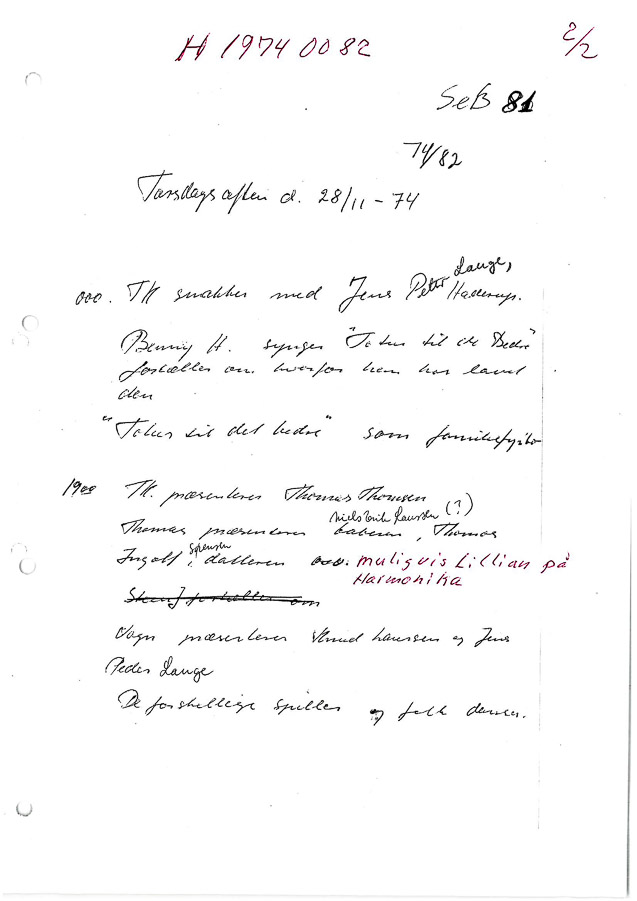 H 1974 0082
2/2
SeB 81
74/82
Torsdag aften d. 28/11 - 74
Lange,
000. TK snakker med Jens Peter Haderup.
Benny H. synger "Tatus til det Bedre"
fortæller om hvorfor han har lavet
den
"Tatus til det bedre" som
1900 TK. præsenterer Thomas Thomsen
Niels Erik Laursen (?)
Thomas præsenterer, Thomas
Sørensen
Ingolf, datteren osv. muligvis Lillian på
Harmonika
fortæller om
Vagn præsenterer Knud Laursen og Jens
Peder Lange
De forskellige spiller og folk danser.